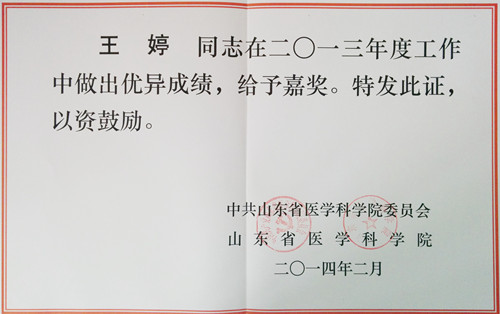 王 婷 同志在二〇一三年度工作
中做出优异成绩，给予嘉奖。特发此证，
以资鼓励。
中共山东省医学科学院委员会
山东省医学科学院
二〇一四年二月